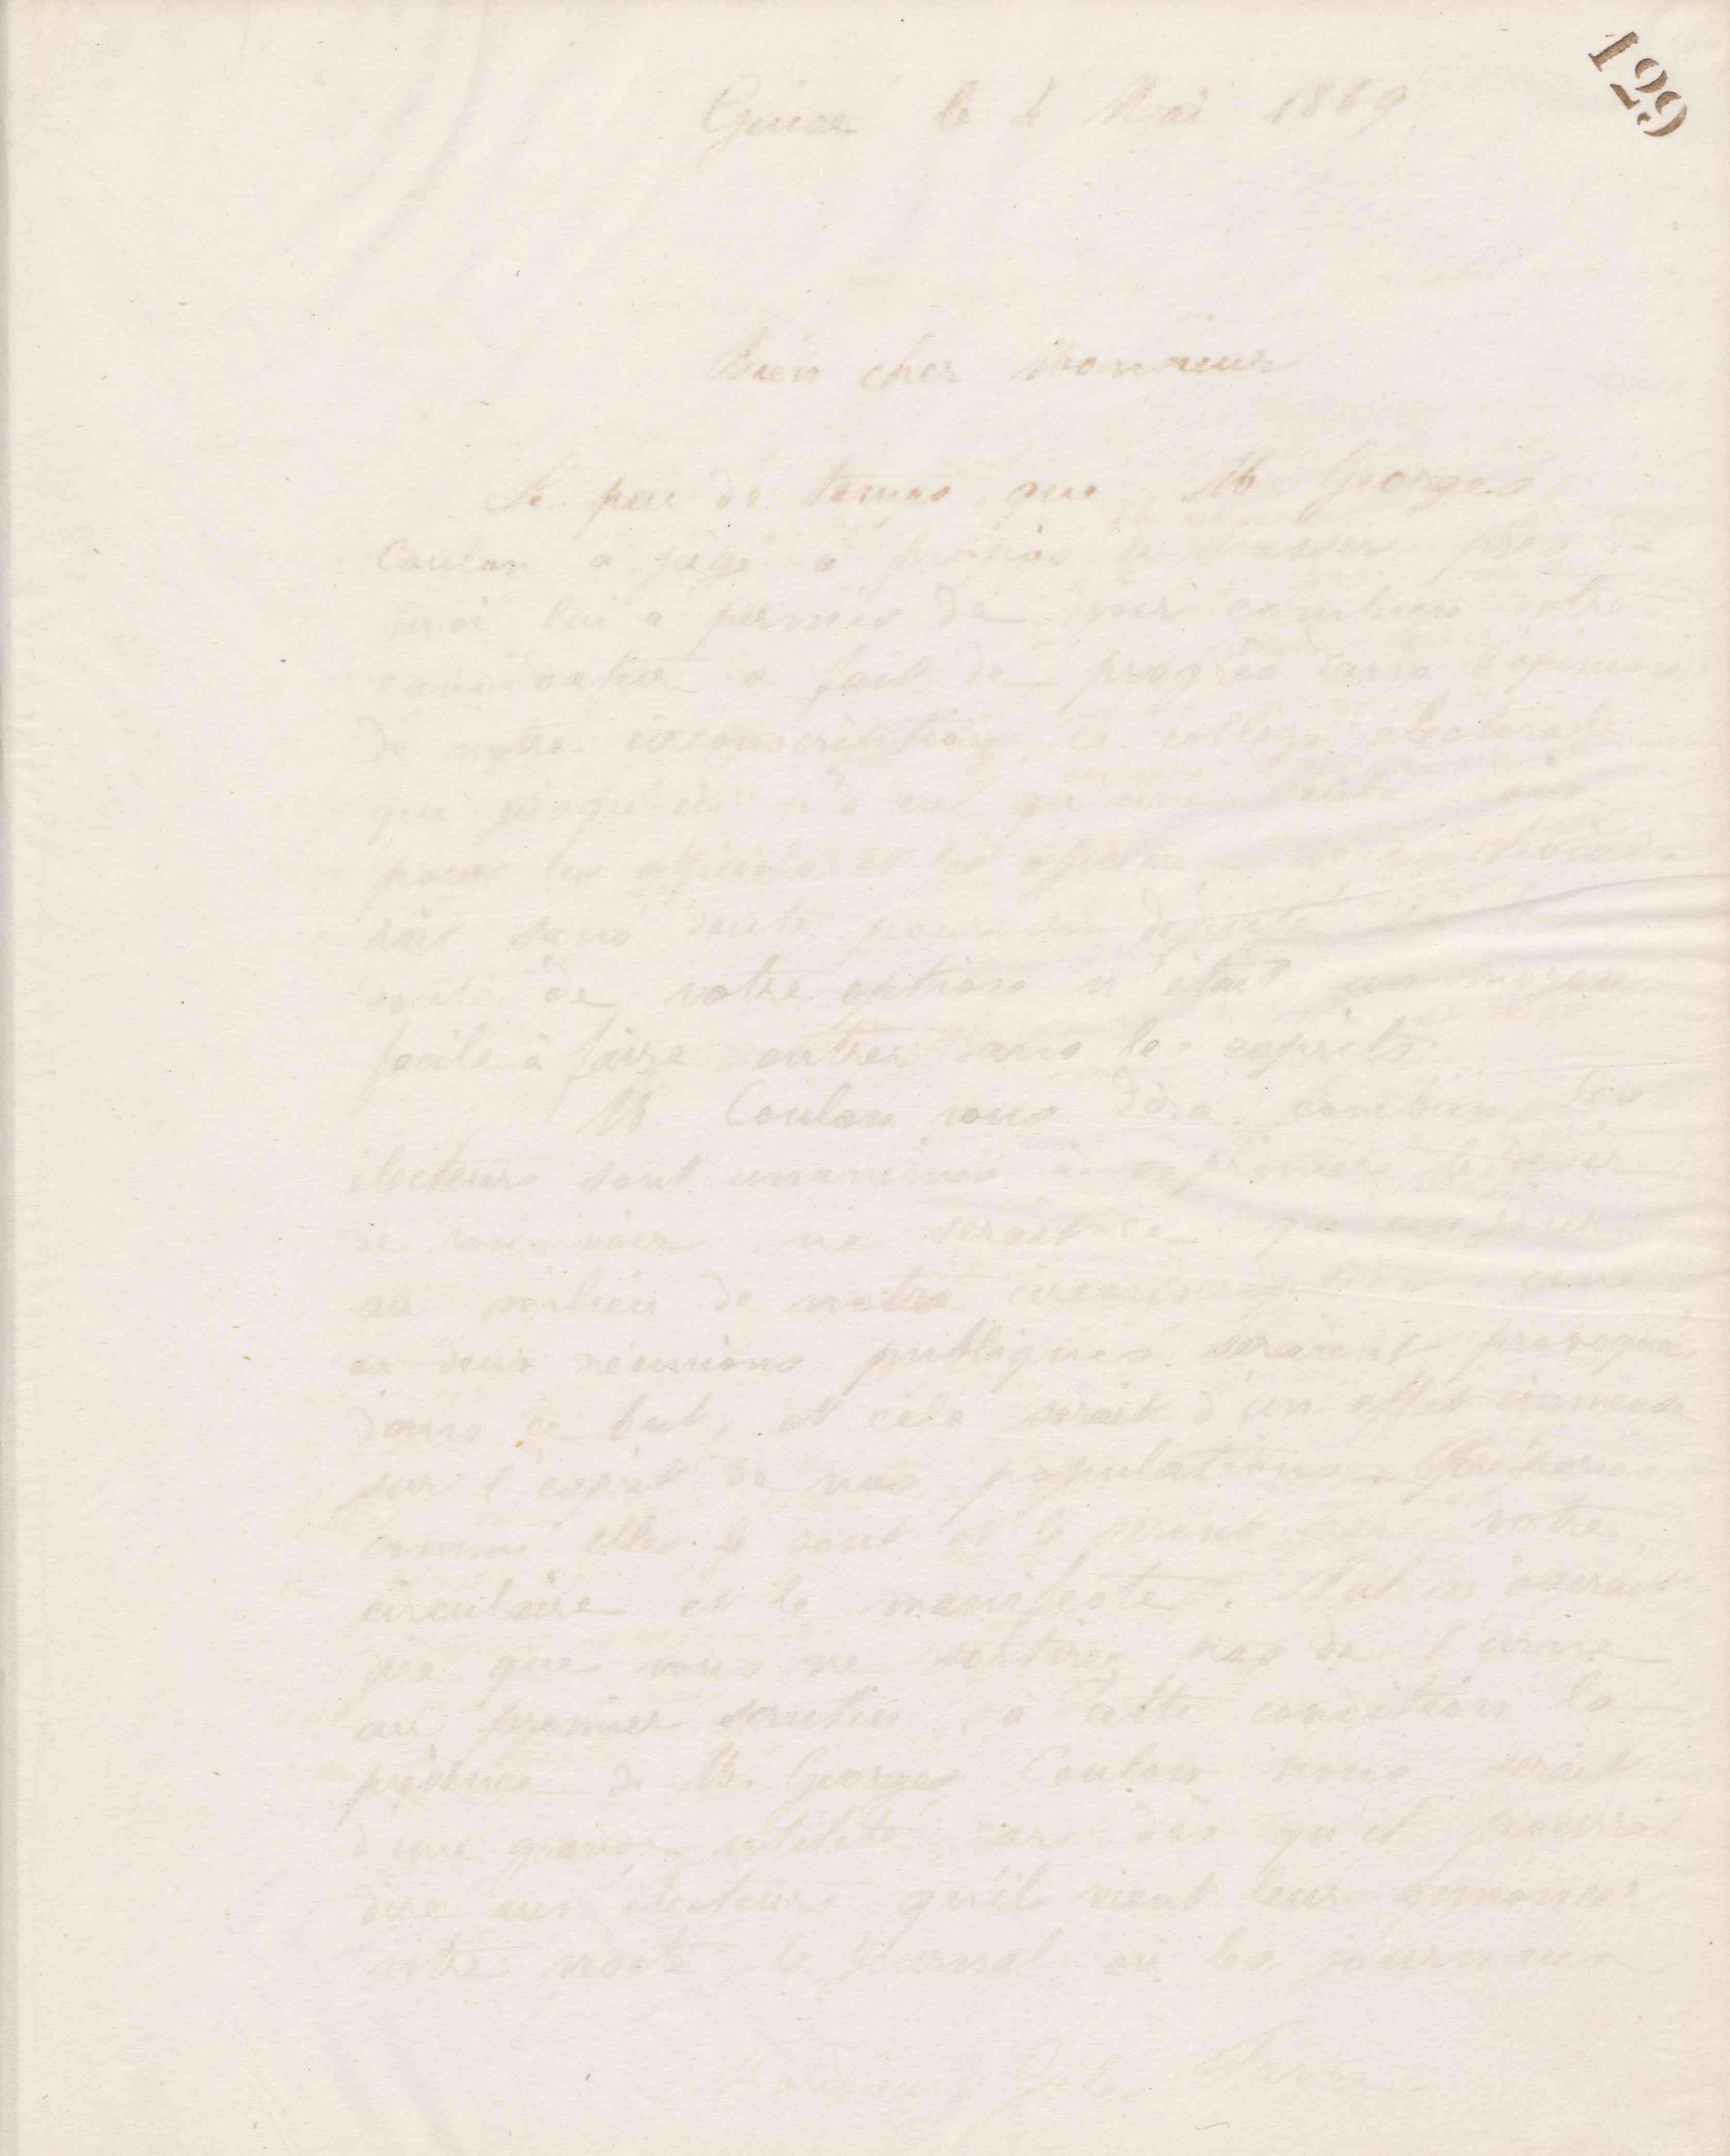 129
Guise le 2 Mai 1869
Bien cher Monsieur
Le peu de temps que M. Georges
Coulon a jugé à propos de passer près de
moi lui a permis de voir combien votre
candidature a fait de progrès dans l'opinion
de notre circonscription, ce collège électoral
qui jusqu'ici n'a eu qu'une
pour les officiels et les
rait sans doute pour député si le
doute de votre option n'était un moyen
facile à faire entrer dans les esprits.
M Coulon vous dira combien les
électeurs sont unanimes à exprimer le désir
de vous voir, ne serait-ce qu'un jour
au milieu de notre circonscription une
ou deux réunions publiques seraient provoquées
dans ce but, et cela serait d'un effet immense
sur l'esprit de nos populations préparées
comme elles le sont et le seront par votre
circulaire et le manifeste. Nul n'oserait
dire que vous ne sortirez pas de l'urne
au premier scrutin, à cette condition la
présence de M. Georges Coulon nous serait
d'une grande utilité, car dès qu'il pourrait
dire aux électeurs qu'il vient leur annoncer
votre visite, le journal ou les journaux
Monsieur Jules Favre